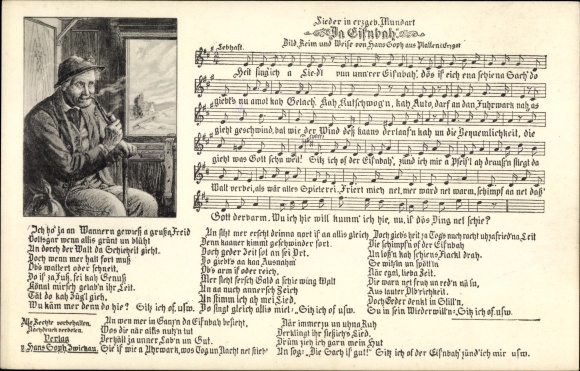 Lieder in erzgeb. Mundart
Da Eisnbah'
Bild, Reim und Weise von Hans Soph aus Platten i. Erzgeb.
Lebhaft.
Heit sing' ich a Lie-dl vun unn'rer Eisnbah', dös is eich ena schiena Sach' do
giebt's nu amol kah Gelach', Kah Rutschwog'n, kah Auto, darf an dan Fuhrwark nah, es
gieht geschwind, bal wie der Wind deß kaans derlaaf'n kah un die Bequemlichkeit, die
gieht waus Gott schu weit! Sitz ich of der Eisnbah', zünd ich mir a Pfeif'l ah drauss'n fliegt da
Walt verbei, als wär alles Spielerei. Friert mich net, mer ward net warm, schimpf aa net daß'
Gott derbarm. Wu ich hie will kumm' ich hie, nu, is dös Ding net schie?
Ich ho' ja an Wannern gewieß a grußa Freid
Vollsgar wenn allis grünt un blüht
Un dorch der Walt da Schieheit gieht.
Doch wenn mer halt fort muß
Ob's waltert oder schneit,
Do is za Fuß, sei kah Genuß
Könnt mirsch gelab'n ihr Leit.
Tät do kah Zügl gieh,
Wu käm mer denn do hie? Sitz ich of. usw.
Un itze mer erscht drinna nort is aa allis gleich
Denn kaaner kimmt geschwinder fort.
Doch geder Zeit sol an sei Ort.
Do giebt's aa kaa Ausnahm'
Ob's arm is oder reich,
Mer sieht fersch Gald a schie wing Walt
Un aa nuch annersch Reich
Un stimm ich ah mei Lied,
Do singt gleich allis miet: „Sitz ich of usw.
Doch giebs heit za Tog's nuch racht uhzafried'na Leit
Die schimpf'n of der Eisnbah
Un loss'n kah schiens Fleckl drah.
Se wißt'n un spött'ln
När egal, lieba Leit.
Die warn net freh un red'n nä su,
Aus lauter Olbrichkeit.
Doch Geder denkt in Still'n,
Su in sein Wiederwill'n: „Sitz ich of. usw.
Un wen mer in Ganz'n da Eisnbah besieht,
Wos die när allis nuh'n tut
Derhält ja unner Lab'n un Gut.
Sie is wie a Uhrwark, wos Tog un Nacht net stieh'
När immerzu un uhna Ruh
Derklingt ihr fleißich's Lied.
Drüm zieh ich garn mein Hut
Un sog: „Die Sach is gut!" Sitz ich of der Eisnbah' zünd' ich mir usw.
Alle Rechte vorbehalten.
Nachdruck verboten.
Verlag
v. Hans Soph, Zwickau.